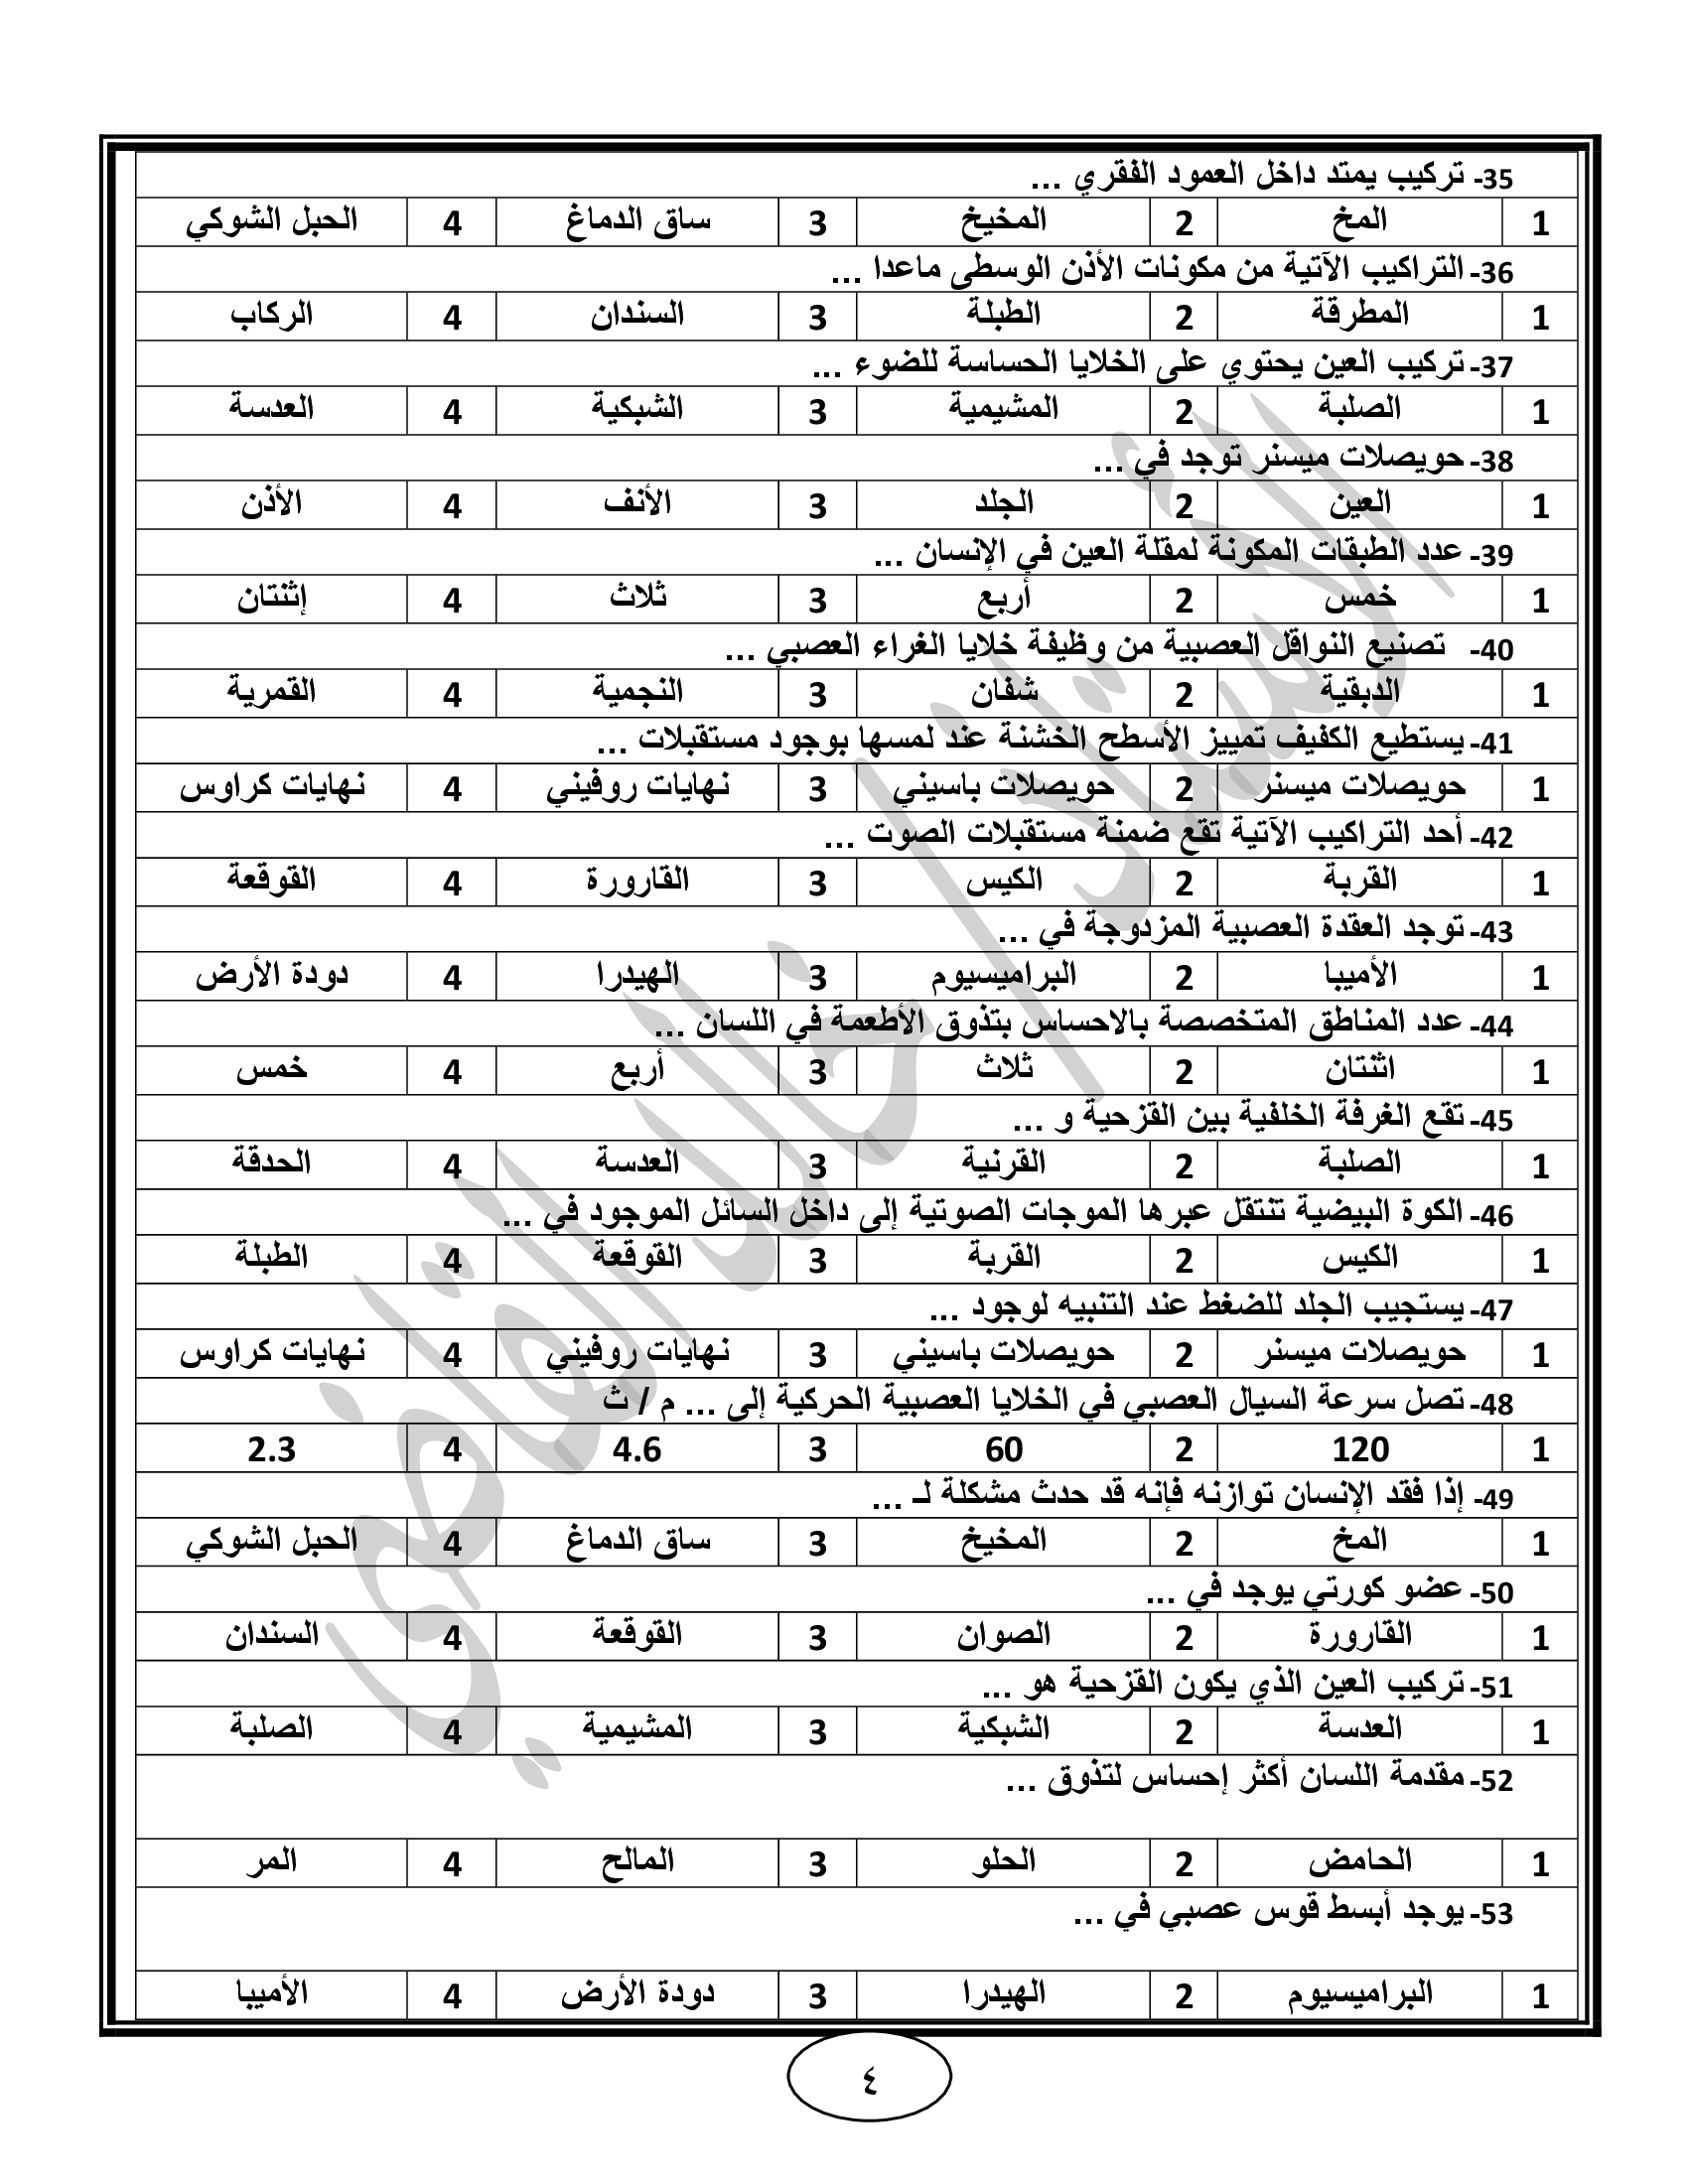 35- تركيب يمتد داخل العمود الفقري ...
1 المخ 2 المخيخ 3 ساق الدماغ 4 الحبل الشوكي
36- التراكيب الآتية من مكونات الأذن الوسطى ماعدا ...
1 المطرقة 2 الطبلة 3 السندان 4 الركاب
37- تركيب العين يحتوي على الخلايا الحساسة للضوء ...
1 الصلبة 2 المشيمية 3 الشبكية 4 العدسة
38- حويصلات ميسنر توجد في ...
1 العين 2 الجلد 3 الأنف 4 الأذن
39- عدد الطبقات المكونة لمقلة العين في الإنسان ...
1 خمس 2 أربع 3 ثلاث 4 إثنتان
40- تصنيع النواقل العصبية من وظيفة خلايا الغراء العصبي ...
1 الدبقية 2 شفان 3 النجمية 4 القمرية
41- يستطيع الكفيف تمييز الأسطح الخشنة عند لمسها بوجود مستقبلات ...
1 حويصلات ميسنر 2 حويصلات باسيني 3 نهايات روفيني 4 نهايات كراوس
42- أحد التراكيب الآتية تقع ضمنة مستقبلات الصوت ...
1 القربة 2 الكيس 3 القارورة 4 القوقعة
43- توجد العقدة العصبية المزدوجة في ...
1 الأميبا 2 البراميسيوم 3 الهيدرا 4 دودة الأرض
44- عدد المناطق المتخصصة بالاحساس بتذوق الأطعمة في اللسان ...
1 اثنتان 2 ثلاث 3 أربع 4 خمس
45- تقع الغرفة الخلفية بين القزحية و ...
1 الصلبة 2 القرنية 3 العدسة 4 الحدقة
46- الكوة البيضية تنتقل عبرها الموجات الصوتية إلى داخل السائل الموجود في ...
1 الكيس 2 القربة 3 القوقعة 4 الطبلة
47- يستجيب الجلد للضغط عند التنبيه لوجود ...
1 حويصلات ميسنر 2 حويصلات باسيني 3 نهايات روفيني 4 نهايات كراوس
48- تصل سرعة السيال العصبي في الخلايا العصبية الحركية إلى ... م / ث
1 120 2 60 3 4.6 4 2.3
49- إذا فقد الإنسان توازنه فإنه قد حدث مشكلة لـ ...
1 المخ 2 المخيخ 3 ساق الدماغ 4 الحبل الشوكي
50- عضو كورتي يوجد في ...
1 القارورة 2 الصوان 3 القوقعة 4 السندان
51- تركيب العين الذي يكون القزحية هو ...
1 العدسة 2 الشبكية 3 المشيمية 4 الصلبة
52- مقدمة اللسان أكثر إحساس لتذوق ...
1 الحامض 2 الحلو 3 المالح 4 المر
53- يوجد أبسط قوس عصبي في ...
1 البراميسيوم 2 الهيدرا 3 دودة الأرض 4 الأميبا
٤
الأستاذ/ خالد القاضي